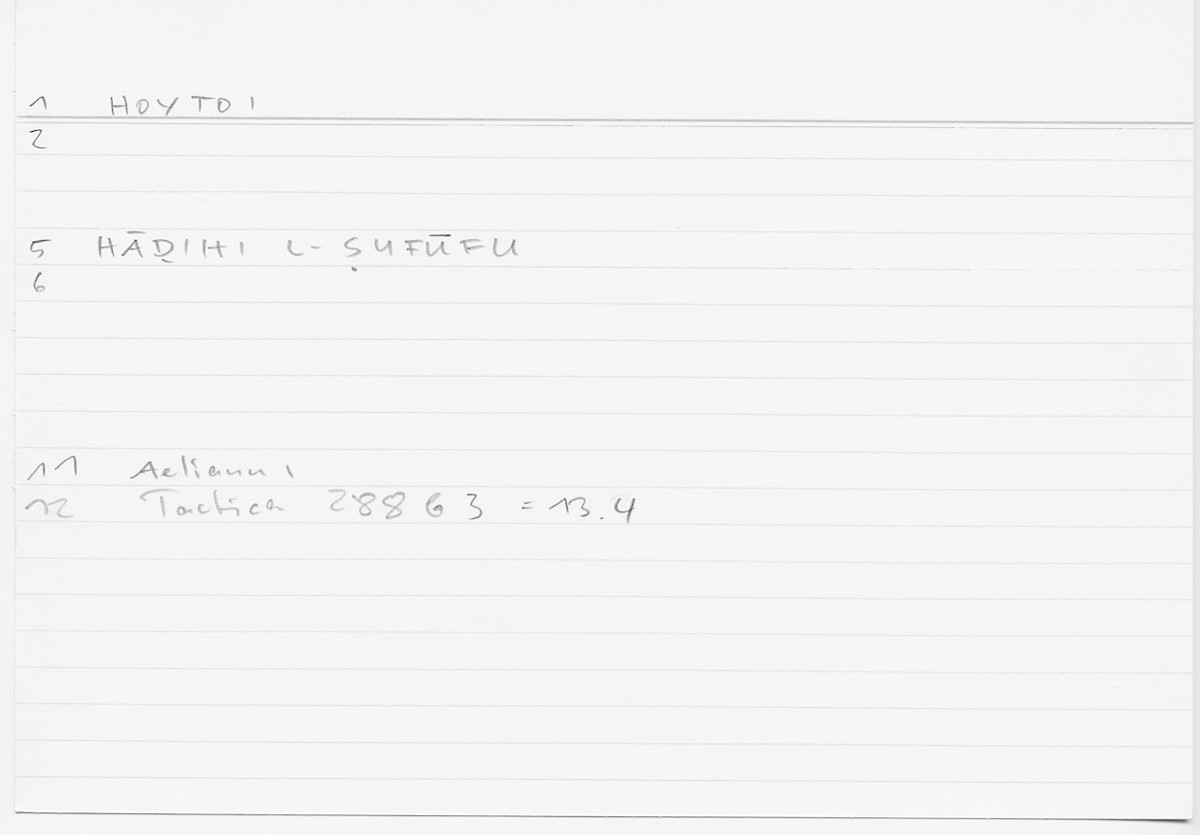 1 HOYTOI
2
5 HĀḎIHI L-ṢUFŪFU
6
11 Aelianus
12 Tactica 288 G 3 = 13.4